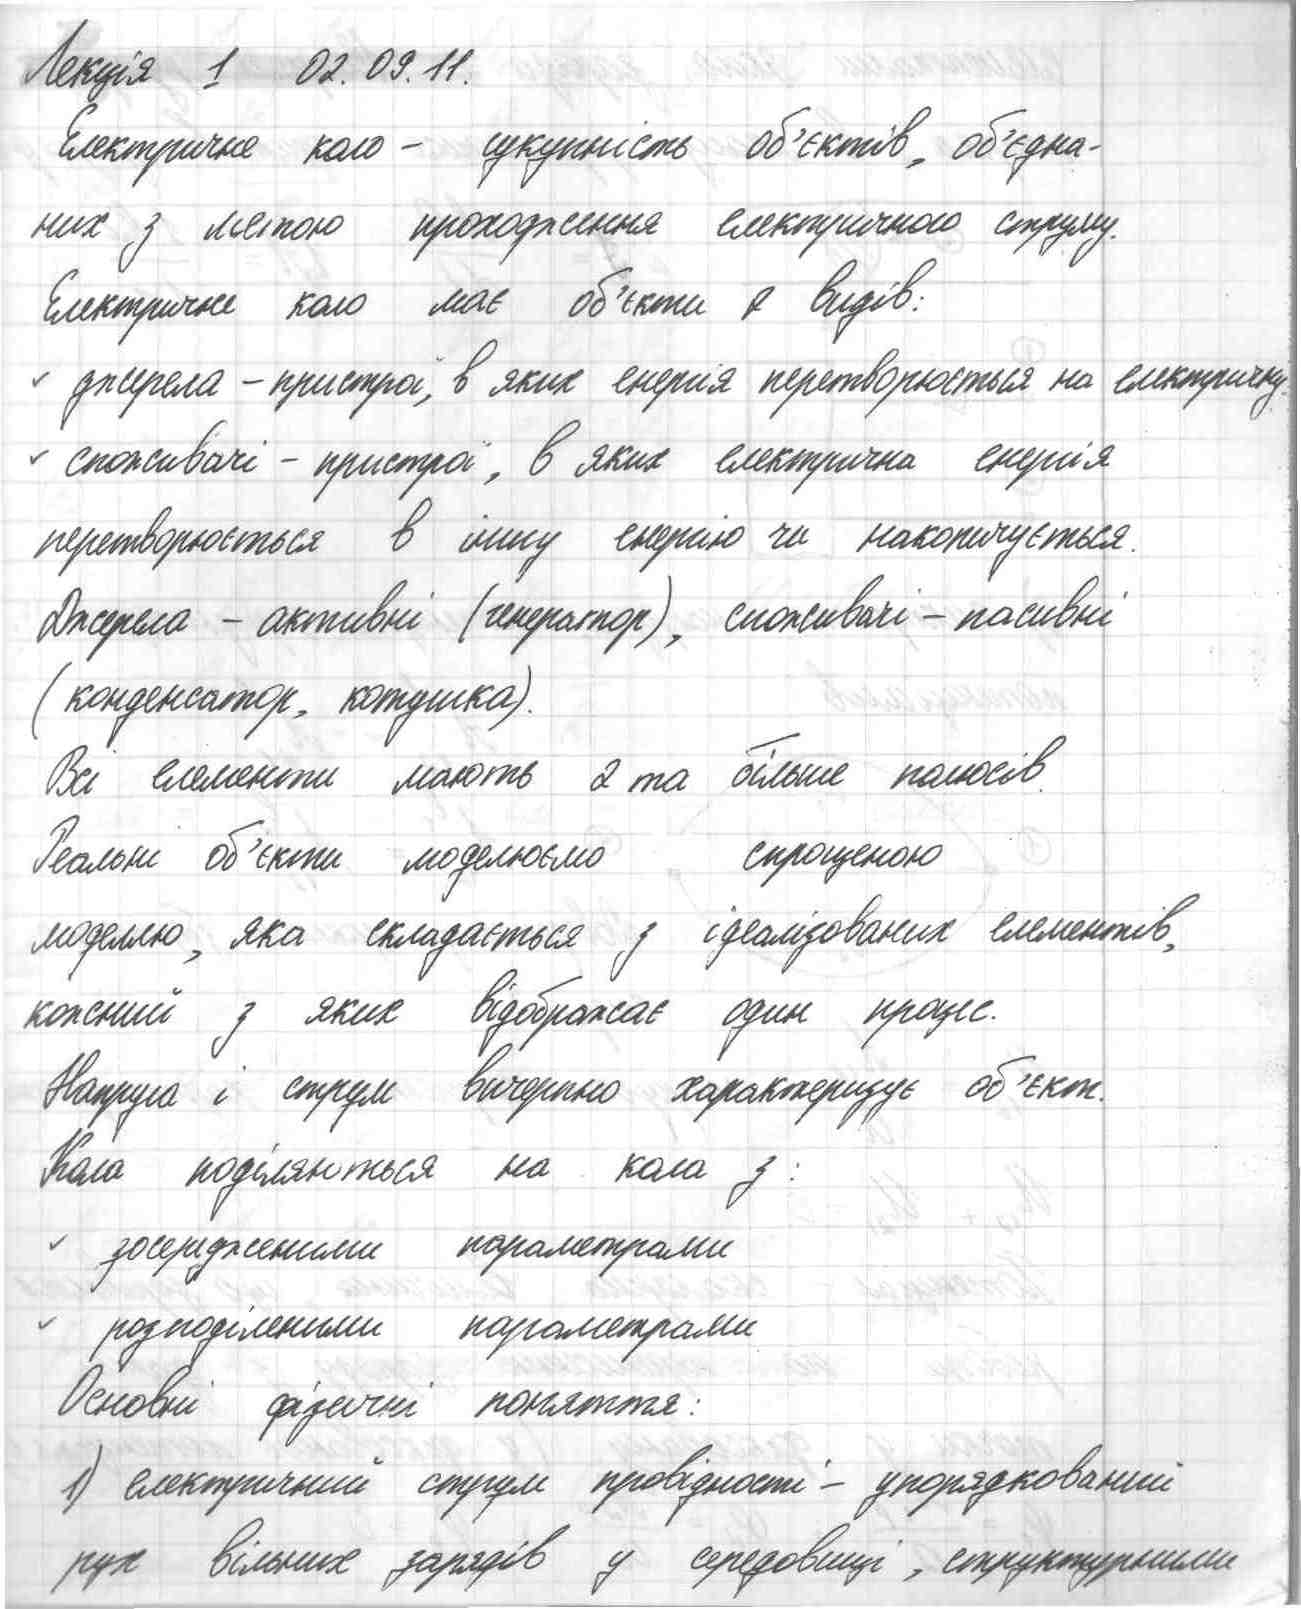 Лекція 1 02.09.11.
Електричне коло – сукупність об'єктів, об'єдна-
них з метою проходження електричного струму.
Електричне коло має об'єкти 2 видів:
✓ джерела – пристрої, в яких енергія перетворюється на електричну.
✓ споживачі – пристрої, в яких електрична енергія
перетворюється в іншу енергію чи накопичується.
Джерела – активні (генератор), споживачі – пасивні
(конденсатор, котушка).
Всі елементи мають 2 та більше полюсів.
Реальні об'єкти моделюємо спрощеною
моделлю, яка складається з ідеалізованих елементів,
кожний з яких відображає один процес.
Напруга і струм вичерпно характеризує об'єкт.
Кола поділяються на кола з:
✓ зосередженими параметрами
✓ розподіленими параметрами
Основні фізичні поняття:
1) електричний струм провідності – упорядкований
рух вільних зарядів у середовищі, структурними